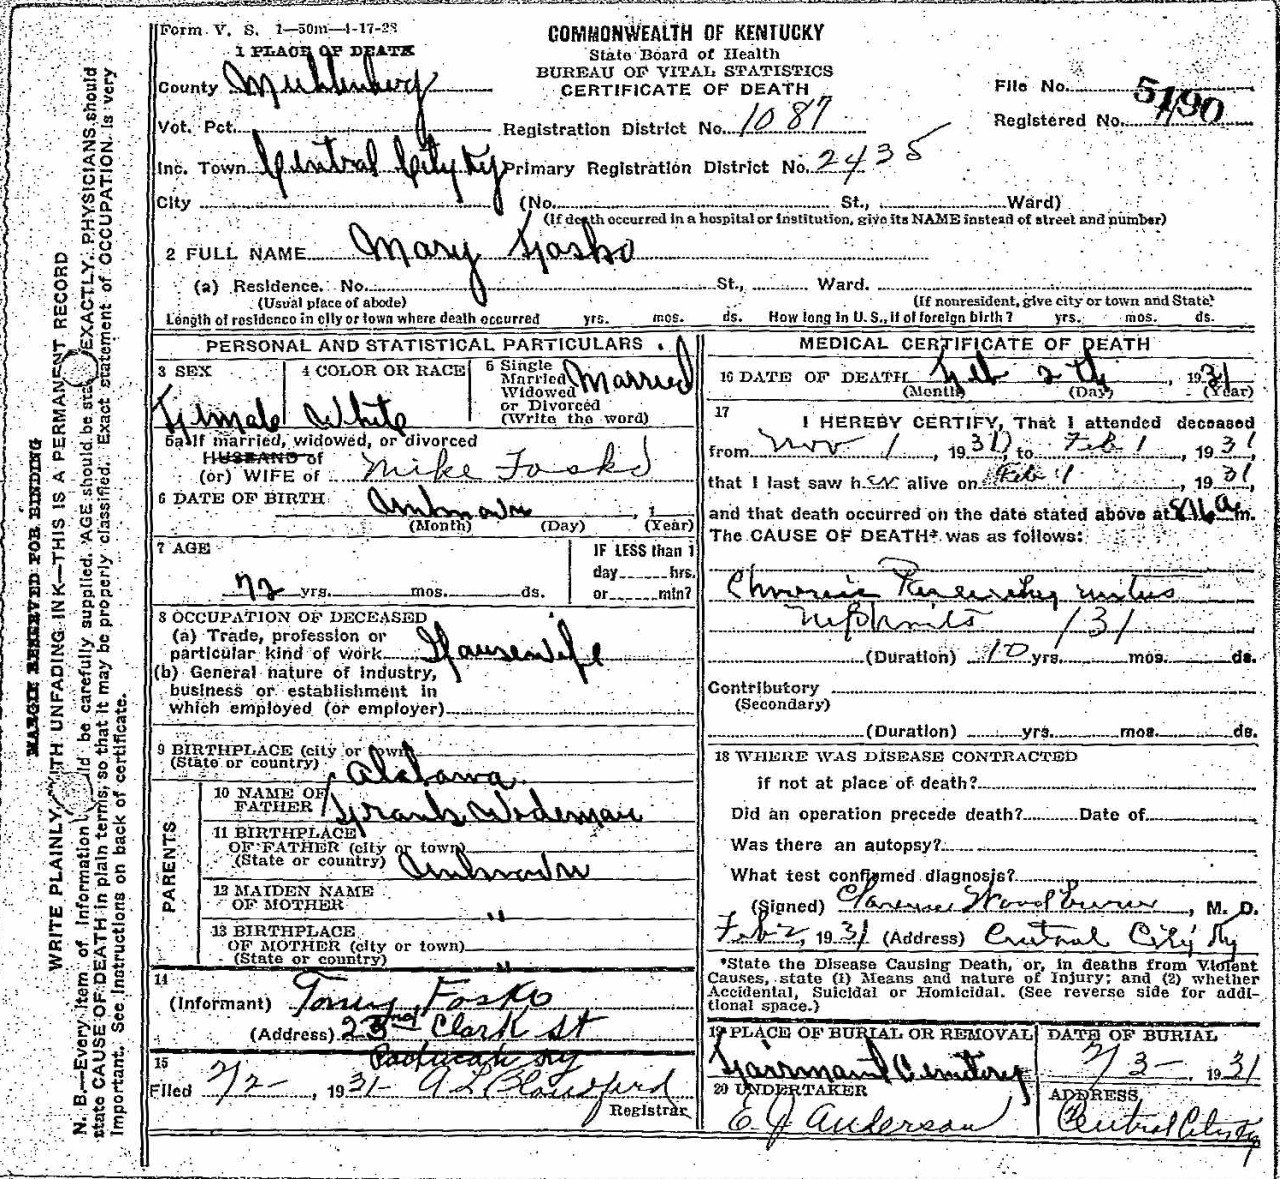 Form V. S. 1—50m—4-17-28
COMMONWEALTH OF KENTUCKY
State Board of Health
BUREAU OF VITAL STATISTICS
CERTIFICATE OF DEATH
1 PLACE OF DEATH
County Muhlenberg
File No. 5190
Vot. Pct.
Registration District No. 1087
Registered No.
Inc. Town Central City Ky
Primary Registration District No. 2435
City (No. St., Ward)
(If death occurred in a hospital or institution, give its NAME instead of street and number)
2 FULL NAME Mary Fosko
(a) Residence. No. St., Ward.
(Usual place of abode) (If nonresident, give city or town and State)
Length of residence in city or town where death occurred yrs. mos. ds. How long in U. S., if of foreign birth? yrs. mos. ds.
PERSONAL AND STATISTICAL PARTICULARS
3 SEX
Female
4 COLOR OR RACE
White
5 Single
Married
Widowed
or Divorced
(Write the word)
Married
5a If married, widowed, or divorced
HUSBAND of
(or) WIFE of Mike Fosko
6 DATE OF BIRTH Unknown , 1
(Month) (Day) (Year)
7 AGE
72 yrs. mos. ds.
IF LESS than 1
day hrs.
or min?
8 OCCUPATION OF DECEASED
(a) Trade, profession or
particular kind of work Housewife
(b) General nature of industry,
business or establishment in
which employed (or employer)
9 BIRTHPLACE (city or town)
(State or country) Alabama
PARENTS
10 NAME OF
FATHER Frank Wideman
11 BIRTHPLACE
OF FATHER (city or town)
(State or country) Unknown
12 MAIDEN NAME
OF MOTHER "
13 BIRTHPLACE
OF MOTHER (city or town)
(State or country) "
14
(Informant) Tony Fosko
(Address) 23nd Clark St
Paducah Ky
15
Filed 2/2- , 1931- A L Blandford
Registrar
MEDICAL CERTIFICATE OF DEATH
16 DATE OF DEATH Feb 2th , 1931
(Month) (Day) (Year)
17
I HEREBY CERTIFY, That I attended deceased
from Nov 1 , 193 , to Feb 1 , 1931
that I last saw her alive on Feb 1 , 1931,
and that death occurred on the date stated above at m.
The CAUSE OF DEATH* was as follows:
Chronic Parenchymitus
Nephritis 131
(Duration) 10 yrs. mos. ds.
Contributory
(Secondary)
(Duration) yrs. mos. ds.
18 WHERE WAS DISEASE CONTRACTED
if not at place of death?
Did an operation precede death? Date of
Was there an autopsy?
What test confirmed diagnosis?
(Signed) Clarence Woodburn , M. D.
Feb 2, 1931 (Address) Central City Ky
*State the Disease Causing Death, or, in deaths from Violent
Causes, state (1) Means and nature of Injury; and (2) whether
Accidental, Suicidal or Homicidal. (See reverse side for addi-
tional space.)
19 PLACE OF BURIAL OR REMOVAL
Fairmount Cemetery
DATE OF BURIAL
2/3- , 1931
20 UNDERTAKER
E J Anderson
ADDRESS
Central City Ky
MARGIN RESERVED FOR BINDING
WRITE PLAINLY WITH UNFADING INK—THIS IS A PERMANENT RECORD
N. B.—Every item of information should be carefully supplied. AGE should be stated EXACTLY. PHYSICIANS should
state CAUSE OF DEATH in plain terms, so that it may be properly classified. Exact statement of OCCUPATION is very
important. See instructions on back of certificate.